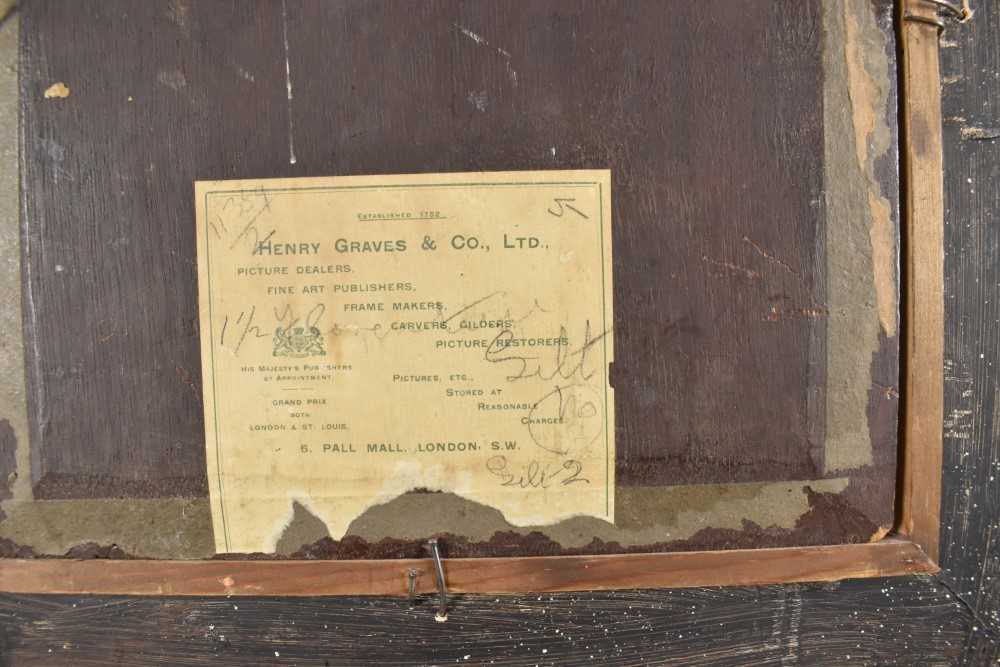 ESTABLISHED 1752
5
HENRY GRAVES & CO., LTD.,
PICTURE DEALERS,
FINE ART PUBLISHERS,
FRAME MAKERS,
1 1/2
CARVERS, GILDERS,
PICTURE RESTORERS.
Gilt
HIS MAJESTY'S PUBLISHERS
BY APPOINTMENT.
GRAND PRIX
BOTH
LONDON & ST. LOUIS.
PICTURES, ETC.,
STORED AT
REASONABLE
CHARGES.
No
6, PALL MALL, LONDON, S.W.
Gilt 2